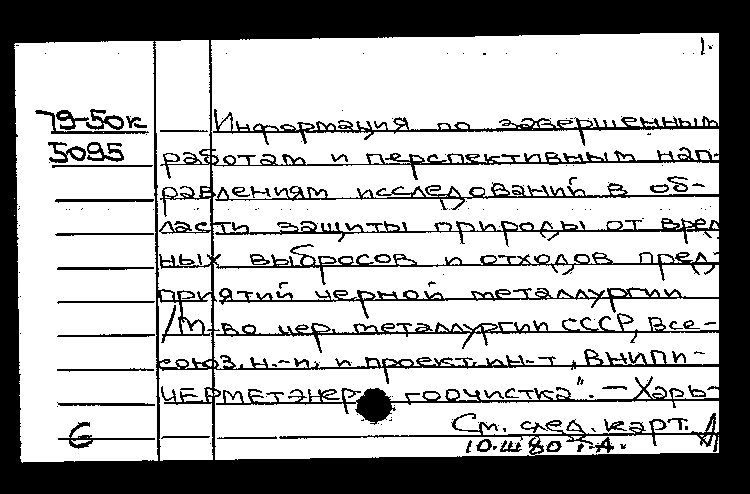 1.
79-50к Информация по завершенным
5095 работам и перспективным нап-
равлениям исследований в об-
ласти защиты природы от вред
ных выбросов и отходов пред-
приятий черной металлургии
/М-во чер. металлургии СССР, Все-
союз. н.-и. и проект. ин-т „ВНИПИ-
ЧЕРМЕТЭНЕР гоочистка". – Харь-
См. след. карт.
6 10.III 80